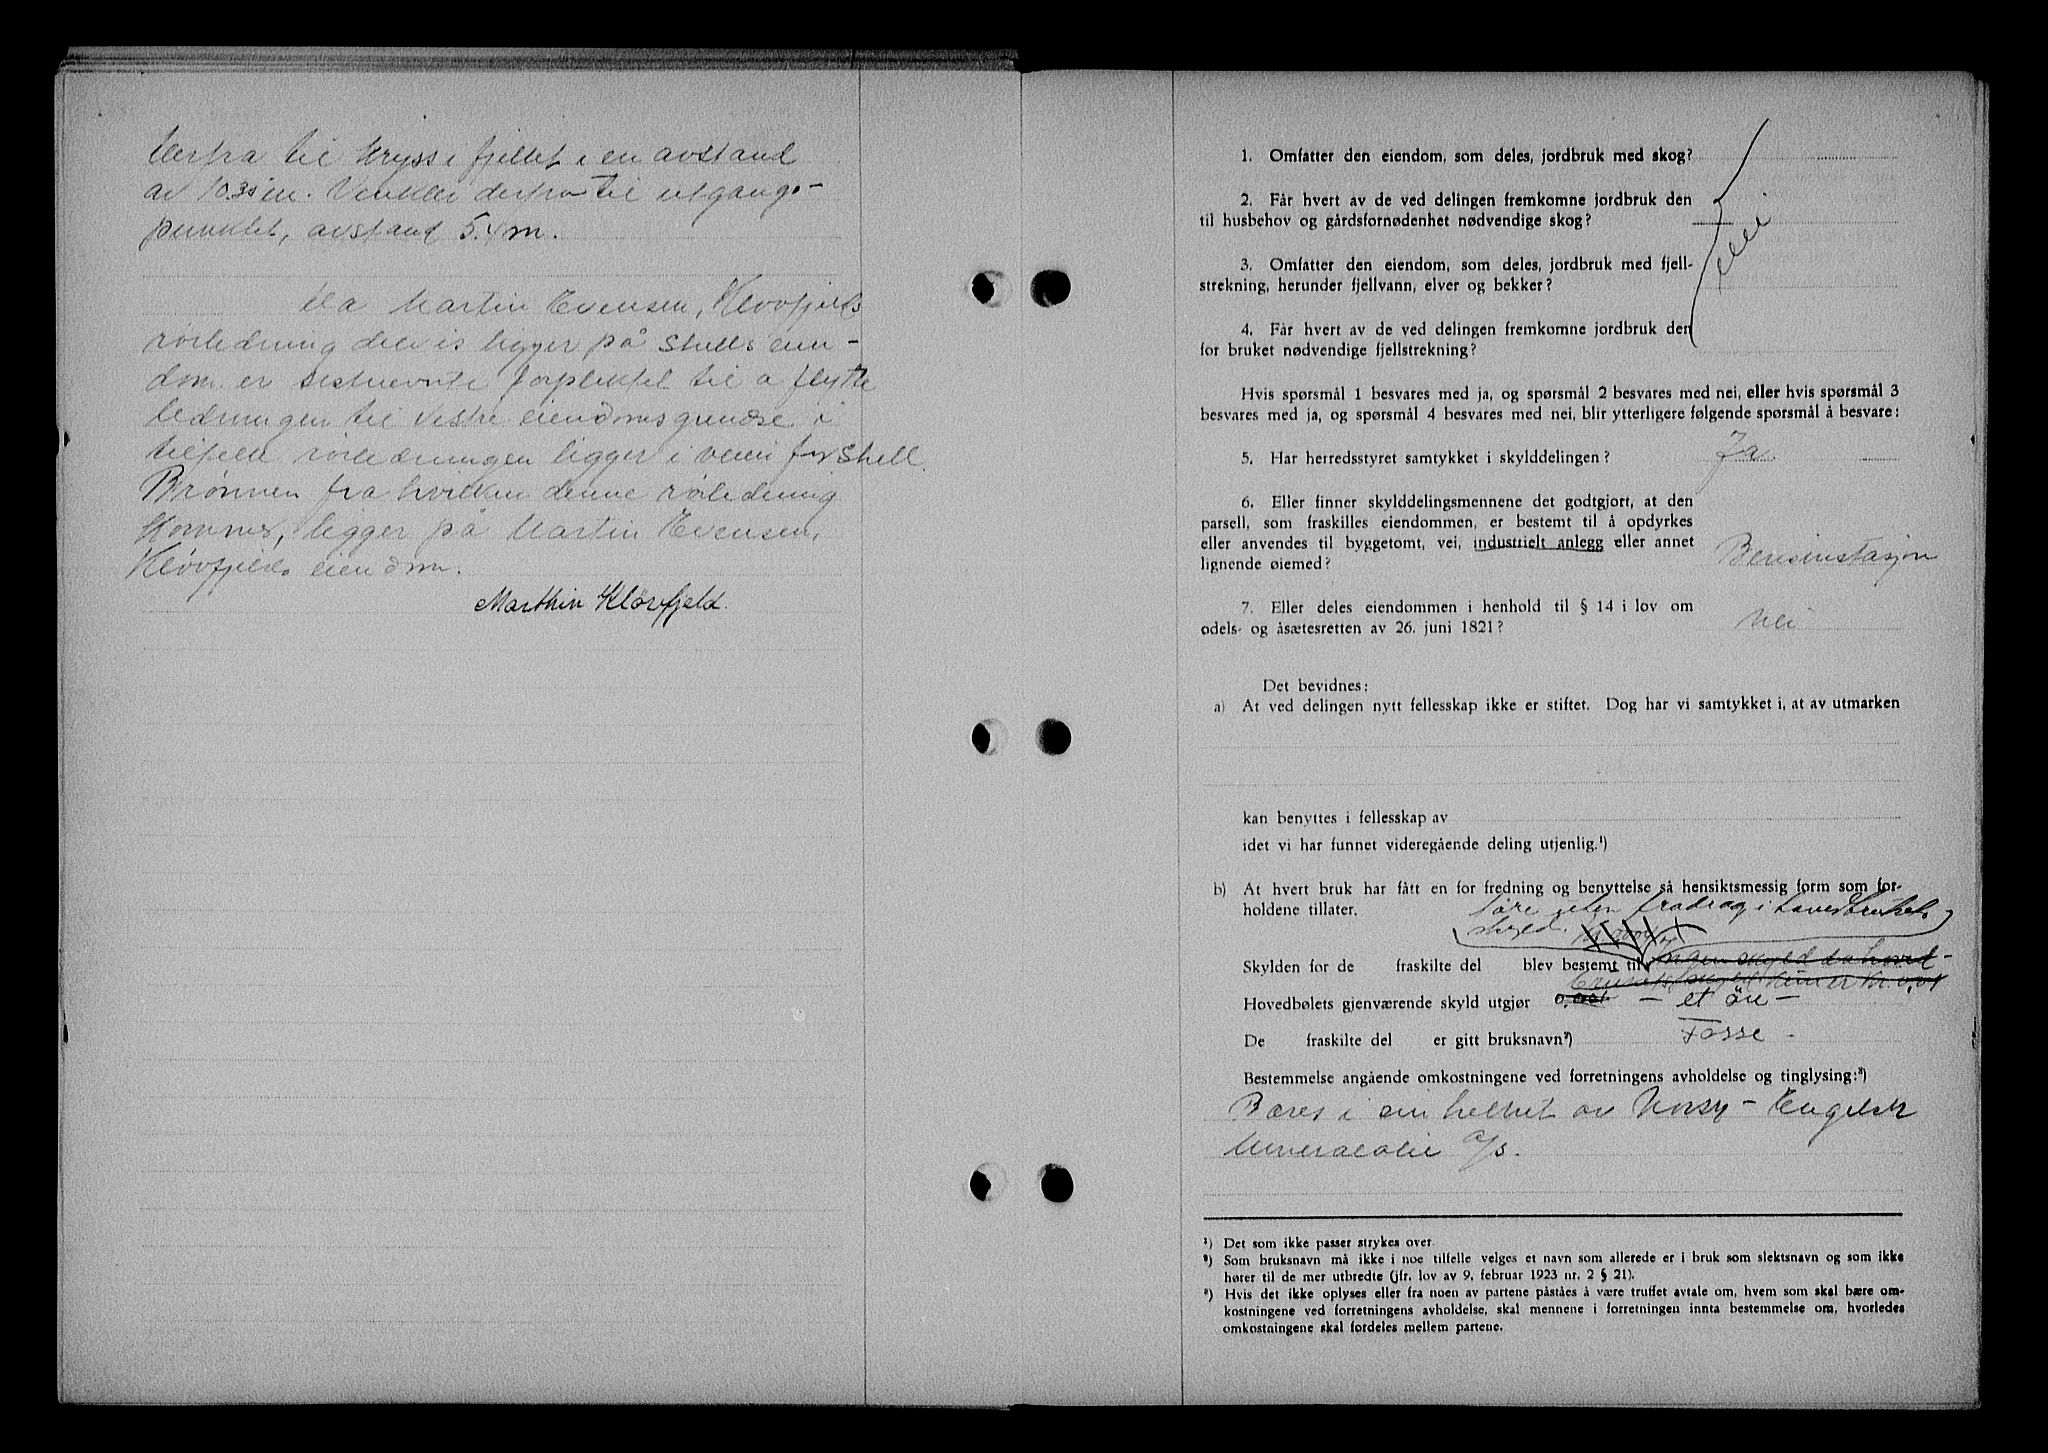 derfra til kryss i fjellet i en avstand
av 10.30 m. Vinkler derfra til utgangs-
punktet, avstand 5.4 m.
Da Martin Evensen, Kløvfjells
rørledning delvis ligger på Shells eien-
dom er sistnevnte forpliktet til å flytte
ledningen til vestre eiendomsgrense i
tilfelle rørledningen ligger i veien for Shell.
Brønnen fra hvilken denne rørledning
kommer, ligger på Martin Evensen,
Kløvfjells eiendom.
Marthin Kløvfjeld.
1. Omfatter den eiendom, som deles, jordbruk med skog?
2. Får hvert av de ved delingen fremkomne jordbruk den
til husbehov og gårdsfornødenhet nødvendige skog?
Nei
3. Omfatter den eiendom, som deles, jordbruk med fjell-
strekning, herunder fjellvann, elver og bekker?
4. Får hvert av de ved delingen fremkomne jordbruk den
for bruket nødvendige fjellstrekning?
Hvis spørsmål 1 besvares med ja, og spørsmål 2 besvares med nei, eller hvis spørsmål 3
besvares med ja, og spørsmål 4 besvares med nei, blir ytterligere følgende spørsmål å besvare:
5. Har herredsstyret samtykket i skylddelingen? Ja.
6. Eller finner skylddelingsmennene det godtgjort, at den
parsell, som fraskilles eiendommen, er bestemt til å opdyrkes
eller anvendes til byggetomt, vei, industrielt anlegg eller annet
lignende øiemed? Bensinstasjon
7. Eller deles eiendommen i henhold til § 14 i lov om
odels- og åsætesretten av 26. juni 1821? Nei
Det bevidnes:
a) At ved delingen nytt fellesskap ikke er stiftet. Dog har vi samtykket i, at av utmarken
kan benyttes i fellesskap av
idet vi har funnet videregående deling utjenlig.¹)
b) At hvert bruk har fått en for fredning og benyttelse så hensiktsmessig form som for-
holdene tillater.
1 øre uten fradrag i hovedbrukets
skyld.
Skylden for de fraskilte del blev bestemt til ingen skyld da hoved-
brukets skyld kun er kr. 0,01
Hovedbølets gjenværende skyld utgjør 0,001 - et øre -
De fraskilte del er gitt bruksnavn²) Fosse -
Bestemmelse angående omkostningene ved forretningens avholdelse og tinglysing:³)
Bæres i sin helhet av Norsk-Engelsk
Mineralolie A/S.
¹) Det som ikke passer strykes over.
²) Som bruksnavn må ikke i noe tilfelle velges et navn som allerede er i bruk som slektsnavn og som ikke
hører til de mer utbredte (jfr. lov av 9. februar 1923 nr. 2 § 21).
³) Hvis det ikke oplyses eller fra noen av partene påståes å være truffet avtale om, hvem som skal bære om-
kostningene ved forretningens avholdelse, skal mennene i forretningen innta bestemmelse om, hvorledes
omkostningene skal fordeles mellem partene.